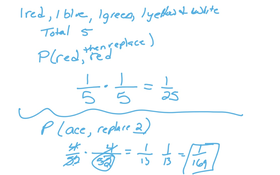 1red, 1 blue, 1green, 1yellow & 1white
Total 5
P(red, then replace red)
1/5 · 1/5 = 1/25
P (ace, replace 2)
4/52 · 4/52 = 1/13 1/13 = 1/169